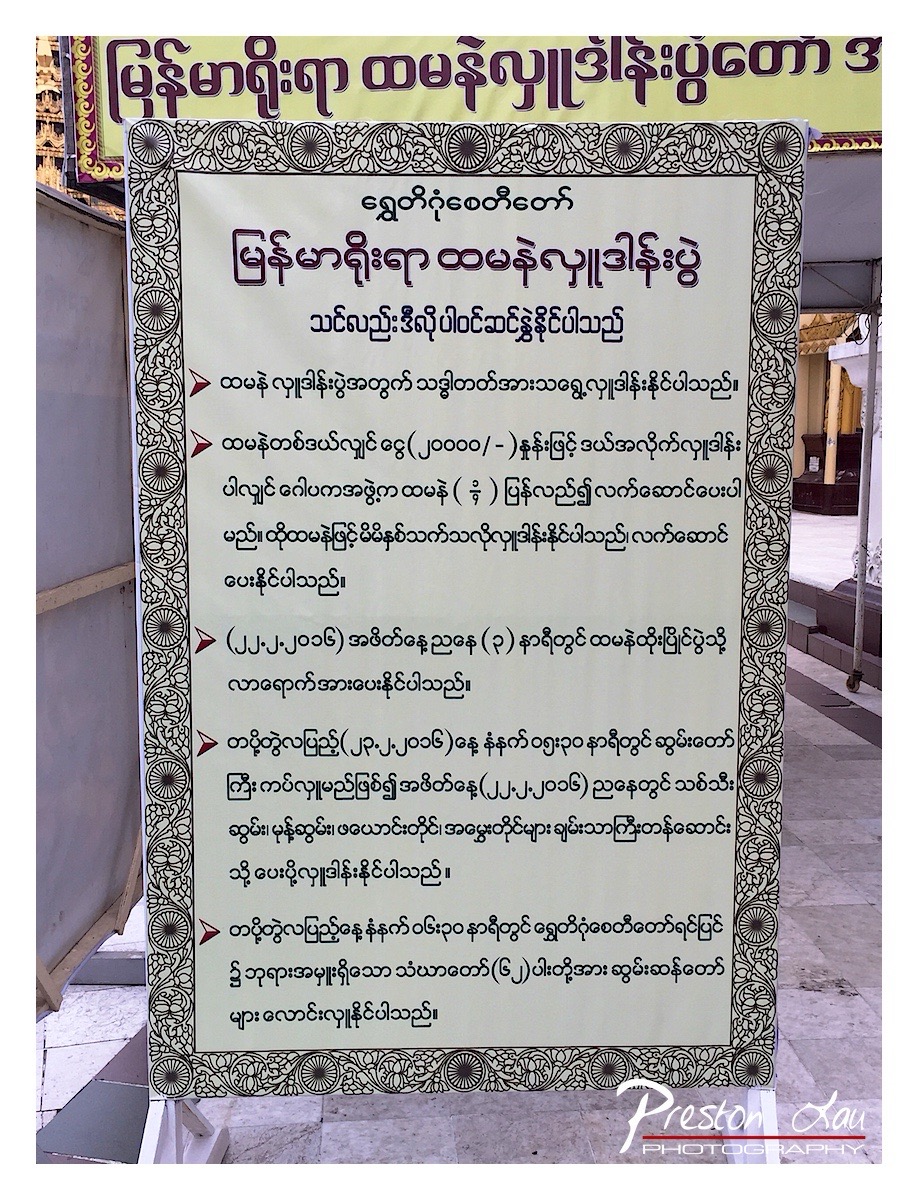 မြန်မာရိုးရာ ထမနဲလှူဒါန်းပွဲတော်
ရွှေတိဂုံစေတီတော်
မြန်မာရိုးရာ ထမနဲလှူဒါန်းပွဲ
သင်လည်းဒီလိုပါဝင်ဆင်နွှဲနိုင်ပါသည်
ထမနဲ လှူဒါန်းပွဲအတွက် သဒ္ဓါတတ်အားသရွေ့လှူဒါန်းနိုင်ပါသည်။
ထမနဲတစ်ဒယ်လျှင် ငွေ(၂၀၀၀၀/-)နှုန်းဖြင့် ဒယ်အလိုက်လှူဒါန်း
ပါလျှင် ဂေါပကအဖွဲ့က ထမနဲ ( ) ပြန်လည်၍ လက်ဆောင်ပေးပါ
မည်။ ထိုထမနဲဖြင့် မိမိနှစ်သက်သလိုလှူဒါန်းနိုင်ပါသည်၊ လက်ဆောင်
ပေးနိုင်ပါသည်။
(၂၂.၂.၂၀၁၆) အဖိတ်နေ့ ညနေ (၃) နာရီတွင် ထမနဲထိုးပြိုင်ပွဲသို့
လာရောက်အားပေးနိုင်ပါသည်။
တပို့တွဲလပြည့်(၂၃.၂.၂၀၁၆)နေ့ နံနက် ၀၅း၃၀ နာရီတွင် ဆွမ်းတော်
ကြီး ကပ်လှူမည်ဖြစ်၍ အဖိတ်နေ့(၂၂.၂.၂၀၁၆) ညနေတွင် သစ်သီး
ဆွမ်း၊ မုန့်ဆွမ်း၊ ဖယောင်းတိုင်၊ အမွှေးတိုင်များ ချမ်းသာကြီးတန်ဆောင်း
သို့ ပေးပို့လှူဒါန်းနိုင်ပါသည်။
တပို့တွဲလပြည့်နေ့ နံနက် ၀၆း၃၀ နာရီတွင် ရွှေတိဂုံစေတီတော်ရင်ပြင်
၌ ဘုရားအမှူးရှိသော သံဃာတော်(၆၂)ပါးတို့အား ဆွမ်းဆန်တော်
များ လောင်းလှူနိုင်ပါသည်။
Preston Lau
PHOTOGRAPHY